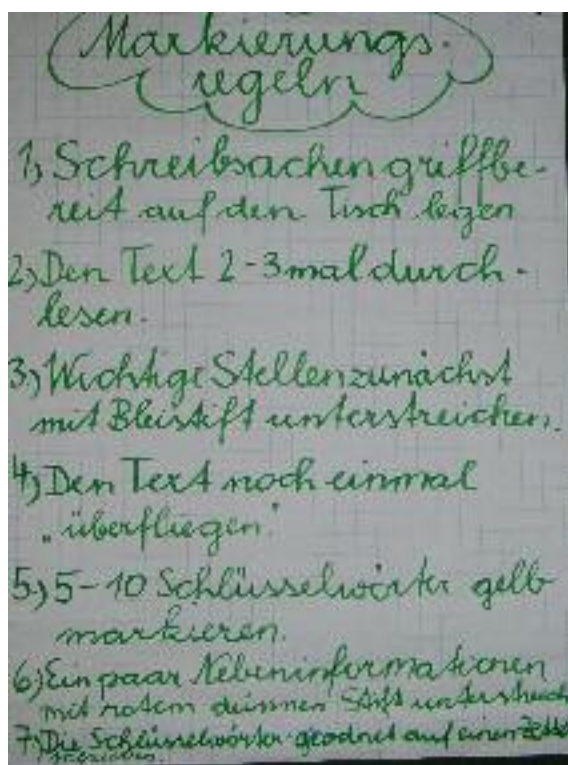 Markierungs-
regeln
1) Schreibsachen griffbe-
reit auf den Tisch legen
2) Den Text 2-3mal durch-
lesen.
3) Wichtige Stellen zunächst
mit Bleistift unterstreichen.
4) Den Text noch einmal
"überfliegen."
5) 5-10 Schlüsselwörter gelb
markieren.
6) Ein paar Nebeninformationen
mit rotem dünnen Stift unterstreich
7) Die Schlüsselwörter geordnet auf einen Zettel